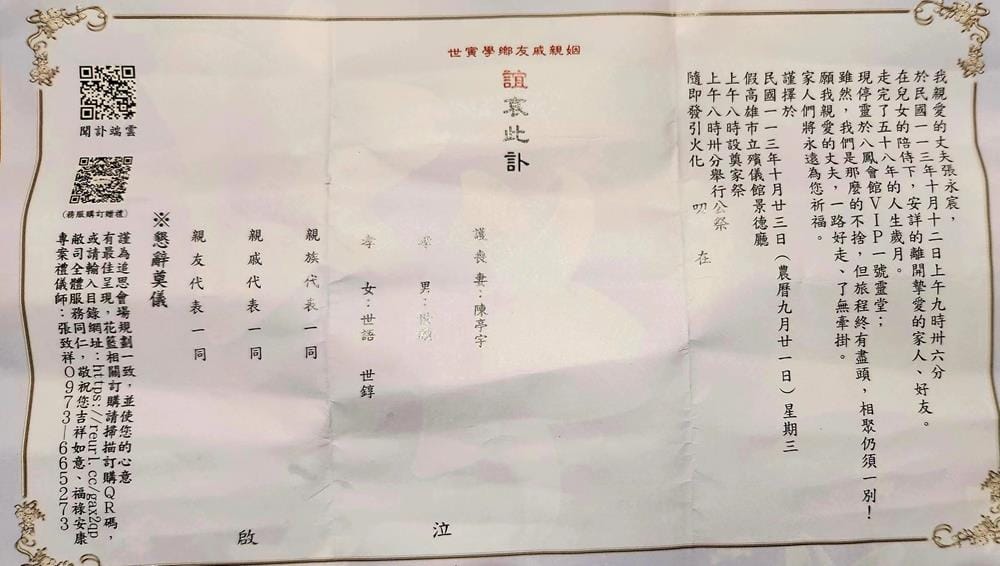 我親愛的丈夫張永宸，
於民國一一三年十月十二日上午九時卅六分
在兒女的陪侍下，安詳的離開摯愛的家人、好友。
走完了五十八年的人生歲月。
現停靈於八鳳會館VIP一號靈堂；
雖然，我們是那麼的不捨，但旅程終有盡頭，相聚仍須一別！
願我親愛的丈夫，一路好走、了無牽掛。
家人們將永遠為您祈福。
謹擇於
民國一一三年十月廿三日（農曆九月廿一日）星期三
假高雄市立殯儀館景德廳
上午八時設奠家祭
上午八時卅分舉行公祭
隨即發引火化
叨 在
姻親戚友鄉學寅世
誼哀此訃
護喪妻：陳亭宇
孝 男：
孝 女：世語 世錞
泣
親族代表一同
親戚代表一同
親友代表一同
啟
※懇辭奠儀
雲端訃聞
(禮贈訂購服務)
謹為追思會場規劃一致，並使您的心意
有最佳呈現，花籃相關訂購請掃描訂購QR碼，
或請輸入目錄網址：https://reurl.cc/gax2qp
敝司全體服務同仁，敬祝您吉祥如意、福祿安康
專案禮儀師：張致祥0973-665273